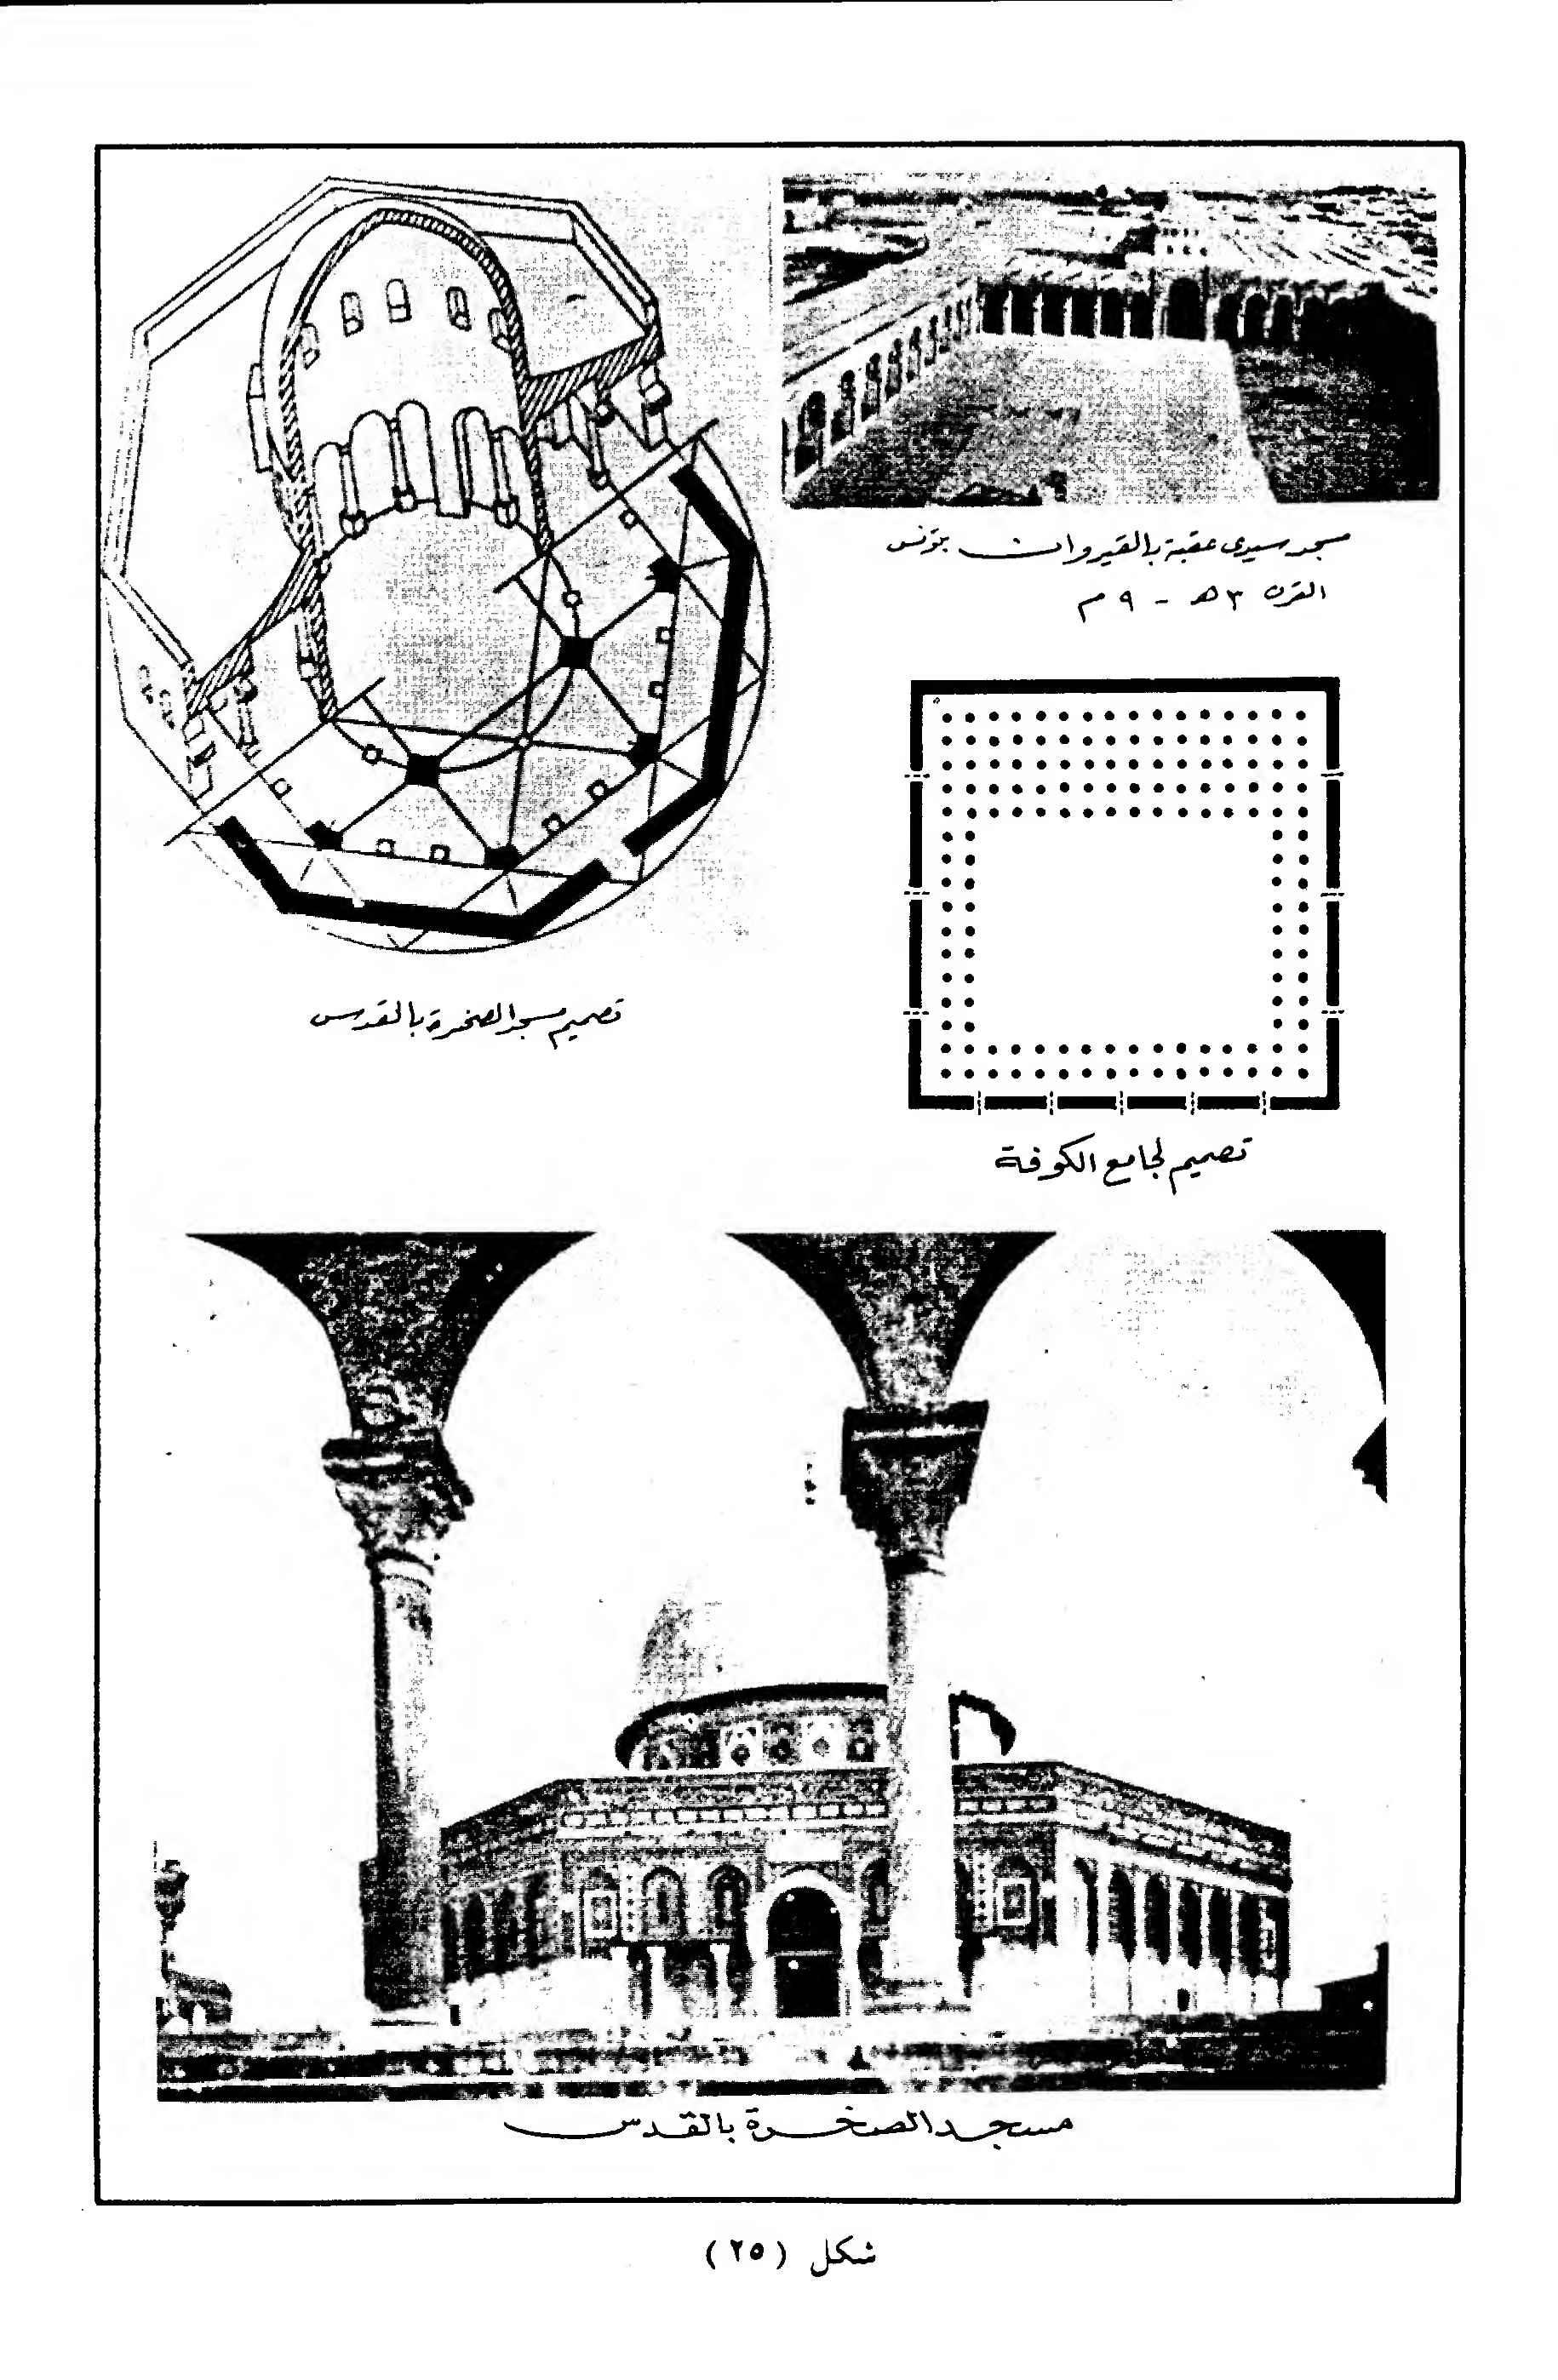 مسجد سيدى عقبة بالقيروان بتونس
القرن ٣ هـ - ٩ م
تصميم مسجد الصخرة بالقدس
تصميم لجامع الكوفة
مسجد الصخرة بالقدس
شكل (٢٥)